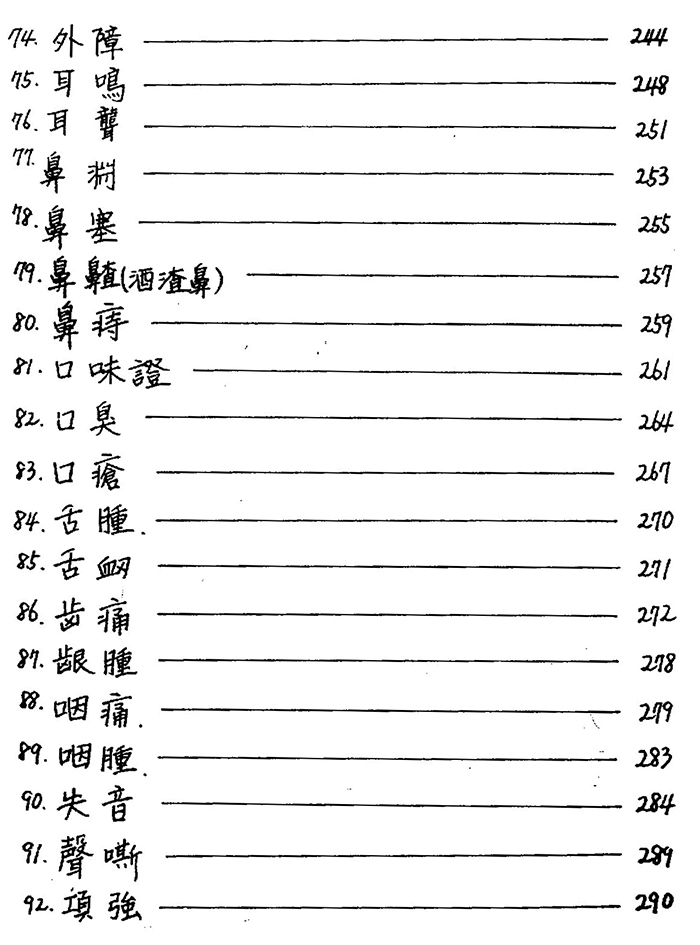 74. 外障 244
75. 耳鳴 248
76. 耳聾 251
77. 鼻淵 253
78. 鼻塞 255
79. 鼻齇(酒渣鼻) 257
80. 鼻痔 259
81. 口味證 261
82. 口臭 264
83. 口瘡 267
84. 舌腫. 270
85. 舌衂 271
86. 齿痛 272
87. 龈腫 278
88. 咽痛. 279
89. 咽腫. 283
90. 失音 284
91. 聲嘶 289
92. 項強 290